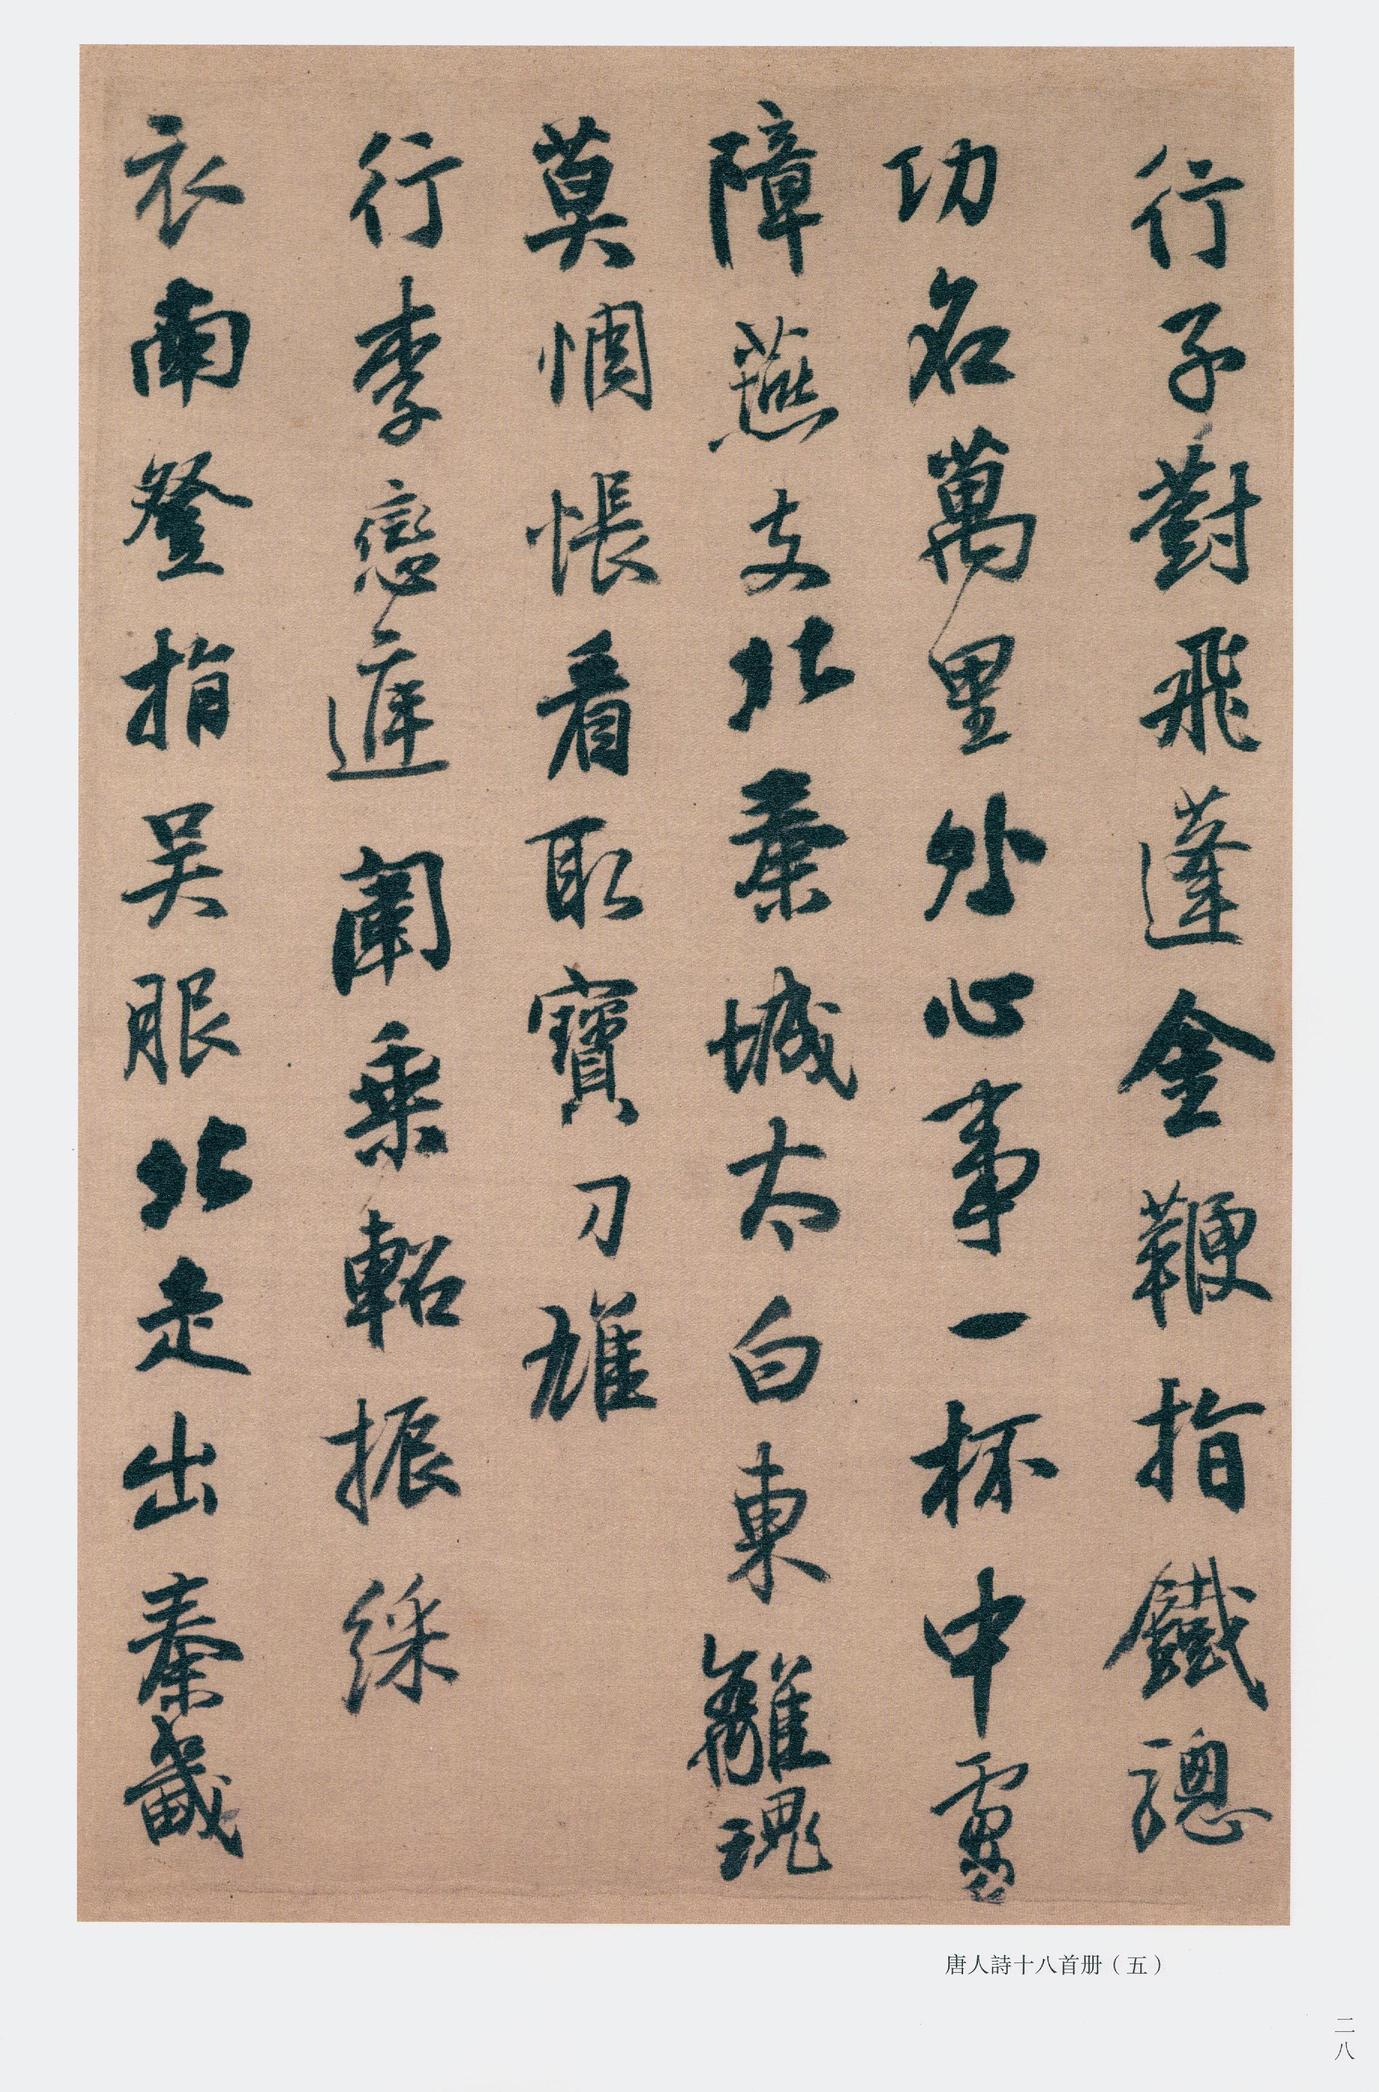 行子對飛蓬金鞭指鐵驄
功名萬里外心事一杯中虜
障燕支北秦城太白東離魂
莫惆悵看取寶刀雄
行李戀遲闈乘軺振綵
衣南登指吴服北走出秦畿
唐人詩十八首册（五）
二八